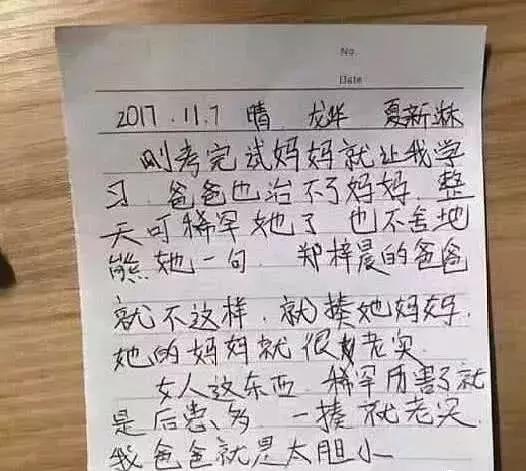 No.
Date
2017.11.7 晴 龙华 夏新淋
刚考完试妈妈就让我学
习.爸爸也治不了妈妈.整
天可稀罕她了 也不舍地
熊她一句. 郑梓晨的爸爸
就不这样.就揍她妈妈.
她的妈妈就很老实
女人这东西.稀罕历害了就
是后患多.一揍就老实
我爸爸就是太胆小